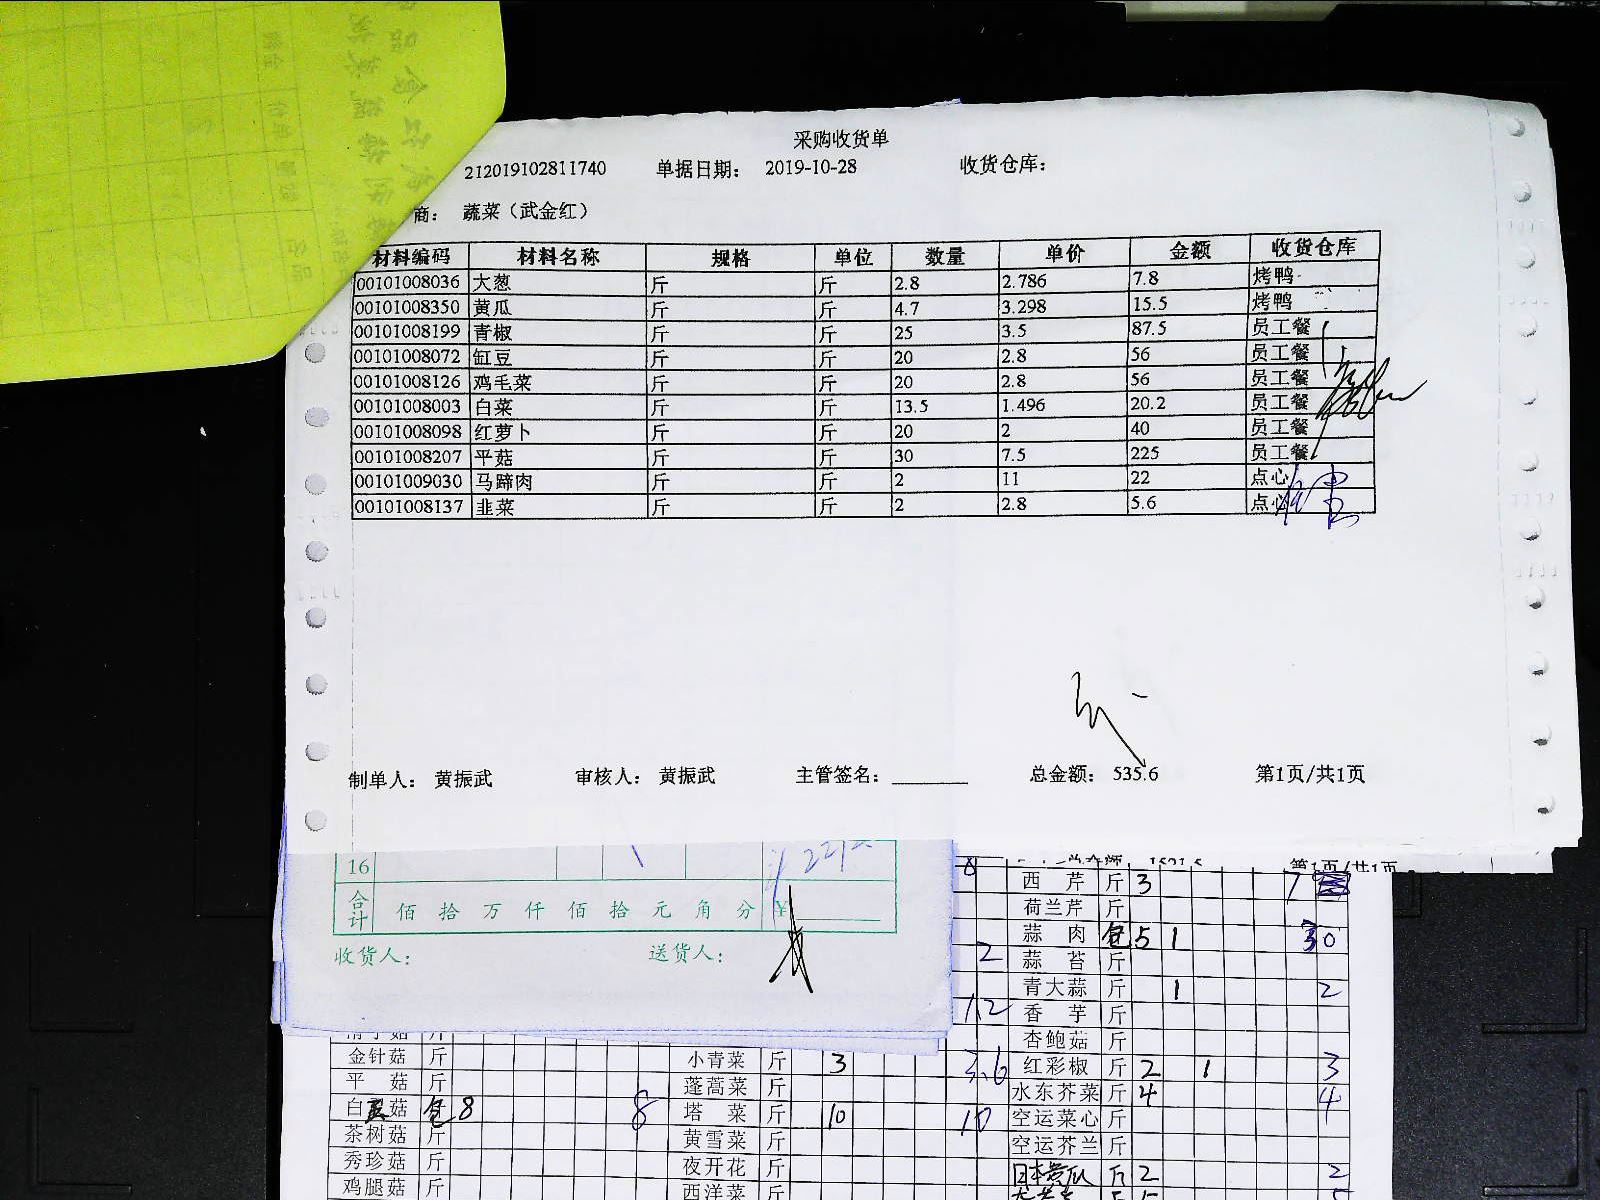 采购收货单
212019102811740 单据日期: 2019-10-28 收货仓库:
商: 蔬菜（武金红）
材料编码 材料名称 规格 单位 数量 单价 金额 收货仓库
00101008036 大葱 斤 斤 2.8 2.786 7.8 烤鸭
00101008350 黄瓜 斤 斤 4.7 3.298 15.5 烤鸭
00101008199 青椒 斤 斤 25 3.5 87.5 员工餐
00101008072 缸豆 斤 斤 20 2.8 56 员工餐
00101008126 鸡毛菜 斤 斤 20 2.8 56 员工餐
00101008003 白菜 斤 斤 13.5 1.496 20.2 员工餐
00101008098 红萝卜 斤 斤 20 2 40 员工餐
00101008207 平菇 斤 斤 30 7.5 225 员工餐
00101009030 马蹄肉 斤 斤 2 11 22 点心
00101008137 韭菜 斤 斤 2 2.8 5.6 点心
制单人: 黄振武 审核人: 黄振武 主管签名: 总金额: 535.6 第1页/共1页
16
合计 佰 拾 万 仟 佰 拾 元 角 分 ¥
收货人: 送货人:
第1页/共1页
西芹 斤 3
荷兰芹 斤
蒜肉 包 5 1 30
2 蒜苔 斤
青大蒜 1 2
12 香芋 斤
杏鲍菇 斤
金针菇 斤 小青菜 斤 3 3.6 红彩椒 斤 2 1 3
平菇 斤 蓬蒿菜 斤 水东芥菜 斤 4 4
白玉菇 包 8 8 塔菜 斤 10 10 空运菜心 斤
茶树菇 斤 黄雪菜 斤 空运芥兰 斤
秀珍菇 斤 夜开花 斤 日本黄瓜 斤 2 2
鸡腿菇 斤 西洋菜 斤